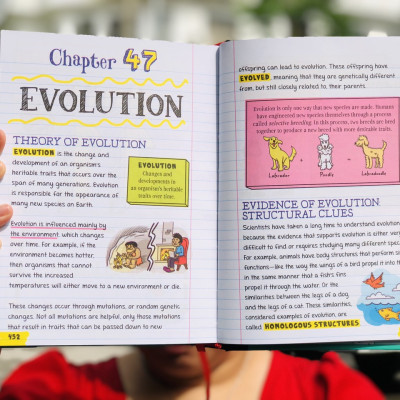 Chapter 47
EVOLUTION
THEORY OF EVOLUTION
EVOLUTION is the change and
development of an organism's
heritable traits that occurs over the
span of many generations. Evolution
is responsible for the appearance of
many new species on Earth.
EVOLUTION
Changes and
developments in
an organism's heritable
traits over time.
Evolution is influenced mainly by
the environment, which changes
over time. For example, if the
environment becomes hotter,
then organisms that cannot
survive the increased
temperatures will either move to a new environment or die.
These changes occur through mutations, or random genetic
changes. Not all mutations are helpful; only those mutations
that result in traits that can be passed down to new
452
offspring can lead to evolution. These offspring have
EVOLVED, meaning that they are genetically different
from, but still closely related to their parents.
Evolution is only one way that new species are made. Humans
have engineered new species themselves through a process
called selective breeding. In this process, two breeds are bred
together to produce a new breed with more desirable traits.
Labrador
+
Poodle
=
Labradoodle
EVIDENCE OF EVOLUTION
STRUCTURAL CLUES
Scientists have taken a long time to understand evolution
because the evidence that supports evolution is either very
difficult to find or requires studying many different spec
For example, animals have body structures that perform s
functions—like the way the wings of a bird propel it into t
in the same manner that a fish's fins
propel it through the water. Or the
similarities between the legs of a dog,
and the legs of a cat. These similarities,
considered examples of evolution, are
called HOMOLOGOUS STRUCTURES